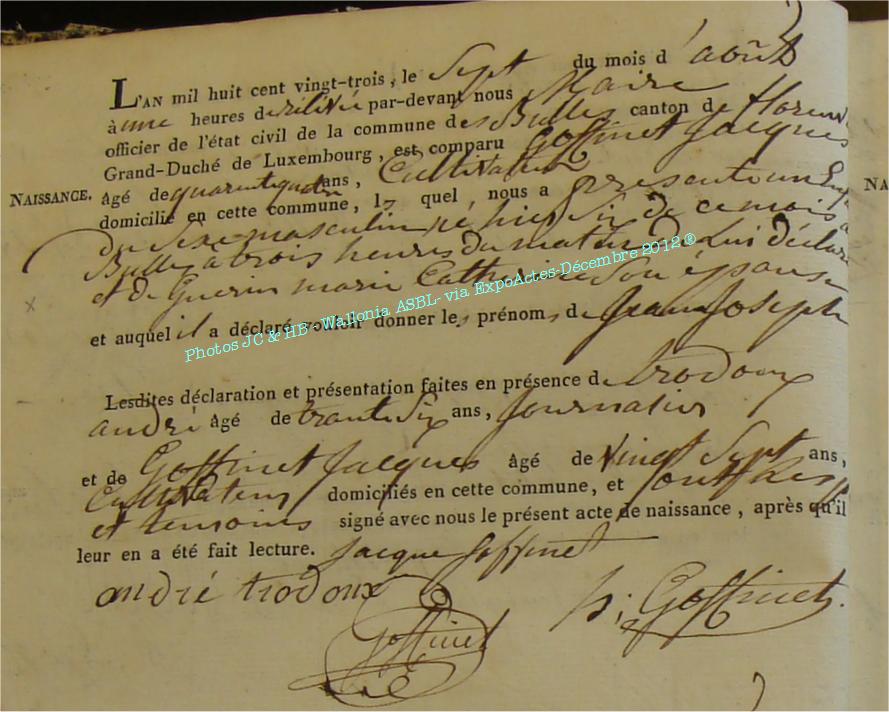 L'AN mil huit cent vingt-trois, le Sept du mois d'août
à une heures de rélivée par-devant nous Maire
officier de l'état civil de la commune des Bulles canton de floren
Grand-Duché de Luxembourg, est comparu Goffinet Jacques
NAISSANCE. âgé de quarentequatre ans, Cultivateur
domicilié en cette commune, lequel nous a presente un Enf
du Sexe masculin né hier Six de ce mois à
Bulles à trois heures du matin de Lui déclara
et de Guerin marie Catherine Son épouse
et auquel il a déclaré vouloir donner les prénoms de Jean Joseph
Lesdites déclaration et présentation faites en présence de trodoux
andré âgé de trante Six ans, Journalier
et de Goffinet Jacques âgé de Vingt Sept ans,
Cultivateur domiciliés en cette commune, et
et temoins signé avec nous le présent acte de naissance, après qu'il
leur en a été fait lecture. Jacque Goffinet
andré trodoux
Goffinet
Goffinet.
NA
Photos JC & HB - Wallonia ASBL- via ExpoActes-Décembre 2012®